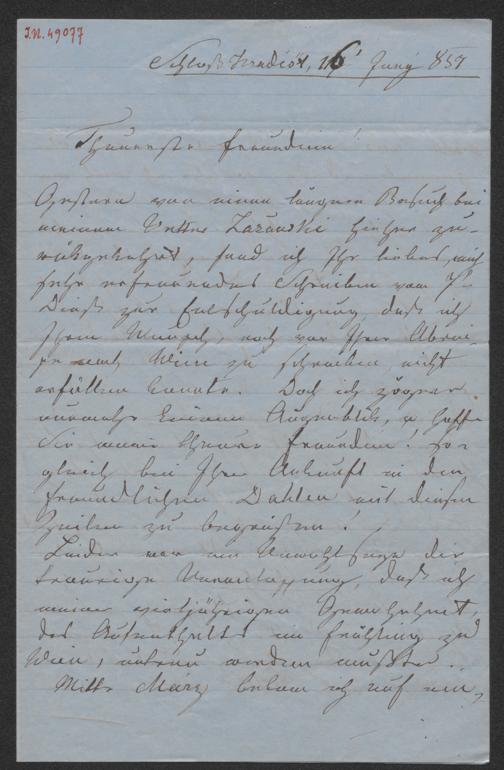 I.N. 49077
Schloß Hradiót, 16' Juny 859
Theuerste Freundinn!
Gestern von einem längern Besuch bei
meinem Vetter Zaruski hieher zu-
rückgekehrt, fand ich Ihr liebes, mich
sehr erfreuendes Schreiben vom 7'
Dieß zur Entschuldigung, daß ich
Ihrem Wunsch, noch vor Ihrer Abrei-
se nach Wien zu schreiben, nicht
erfüllen konnte. Doch ich zögere
nunmehr keinen Augenblick, u hoffe
Sie meine theure Freundinn! so-
gleich bei Ihrer Ankunft in dem
freundlichen mit diesen
Zeilen zu begrüßen!
Leider war ein Unwohlsein die
traurige Veranlassung, daß ich
meiner vieljährigen Gewohnheit,
des Aufenthalts im Frühling zu
Wien, untreu werden mußte.
Mitte März bekam ich auf ein,